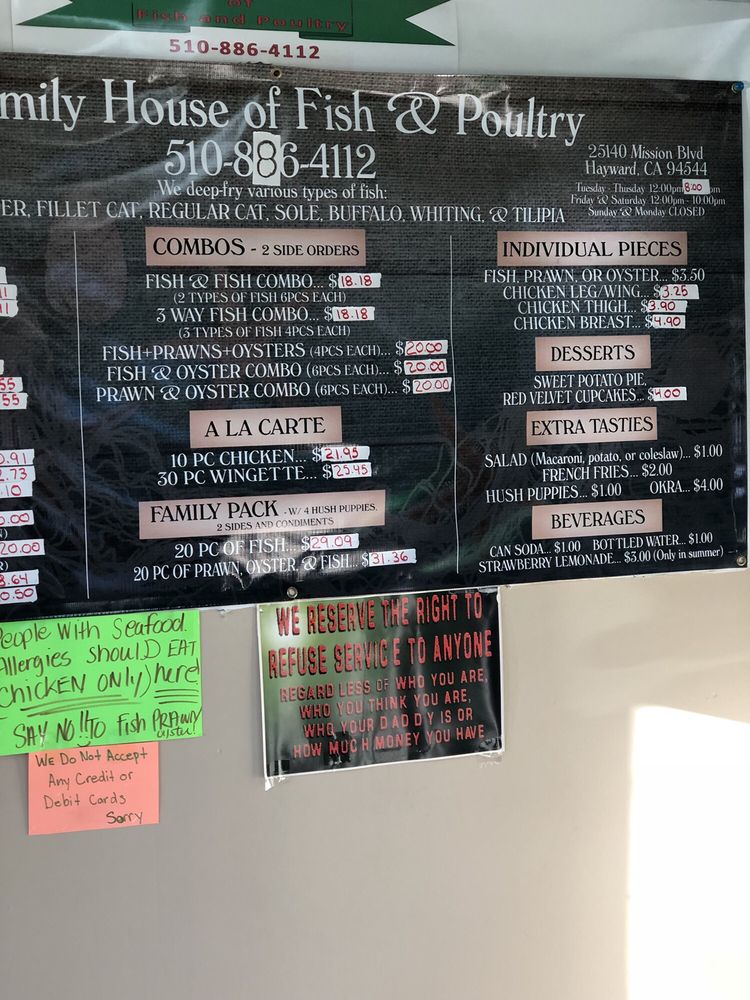 of
Fish and Poultry
510-886-4112
mily House of Fish & Poultry
510-886-4112
We deep-fry various types of fish:
ER, FILLET CAT, REGULAR CAT, SOLE, BUFFALO, WHITING, & TILIPIA
25140 Mission Blvd
Hayward, CA 94544
Tuesday - Thursday 12:00pm 8:00 pm
Friday & Saturday 12:00pm - 10:00pm
Sunday & Monday CLOSED
11
11
55
55
0.91
2.73
.10
0.00
20.00
8.64
0.50
COMBOS - 2 SIDE ORDERS
FISH & FISH COMBO... $18.18
(2 TYPES OF FISH 6PCS EACH)
3 WAY FISH COMBO... $18.18
(3 TYPES OF FISH 4PCS EACH)
FISH+PRAWNS+OYSTERS (4PCS EACH)... $20.00
FISH & OYSTER COMBO (6PCS EACH)... $20.00
PRAWN & OYSTER COMBO (6PCS EACH)... $20.00
A LA CARTE
10 PC CHICKEN... $21.95
30 PC WINGETTE... $25.45
FAMILY PACK - W/ 4 HUSH PUPPIES,
2 SIDES AND CONDIMENTS
20 PC OF FISH... $29.09
20 PC OF PRAWN, OYSTER, & FISH... $31.36
INDIVIDUAL PIECES
FISH, PRAWN, OR OYSTER... $3.50
CHICKEN LEG/WING... $3.25
CHICKEN THIGH... $3.90
CHICKEN BREAST... $4.90
DESSERTS
SWEET POTATO PIE,
RED VELVET CUPCAKES... $4.00
EXTRA TASTIES
SALAD (Macaroni, potato, or coleslaw)... $1.00
FRENCH FRIES... $2.00
HUSH PUPPIES... $1.00 OKRA... $4.00
BEVERAGES
CAN SODA... $1.00 BOTTLED WATER... $1.00
STRAWBERRY LEMONADE... $3.00 (Only in summer)
People With Seafood
Allergies ShoulD EAT
CHICKEN ONly) here
SAY NO!! TO Fish PRAWN
oyster!
We Do Not Accept
Any Credit or
Debit Cards
Sorry
WE RESERVE THE RIGHT TO
REFUSE SERVICE TO ANYONE
REGARD LESS OF WHO YOU ARE,
WHO YOU THINK YOU ARE,
WHO YOUR DADDY IS OR
HOW MUCH MONEY YOU HAVE